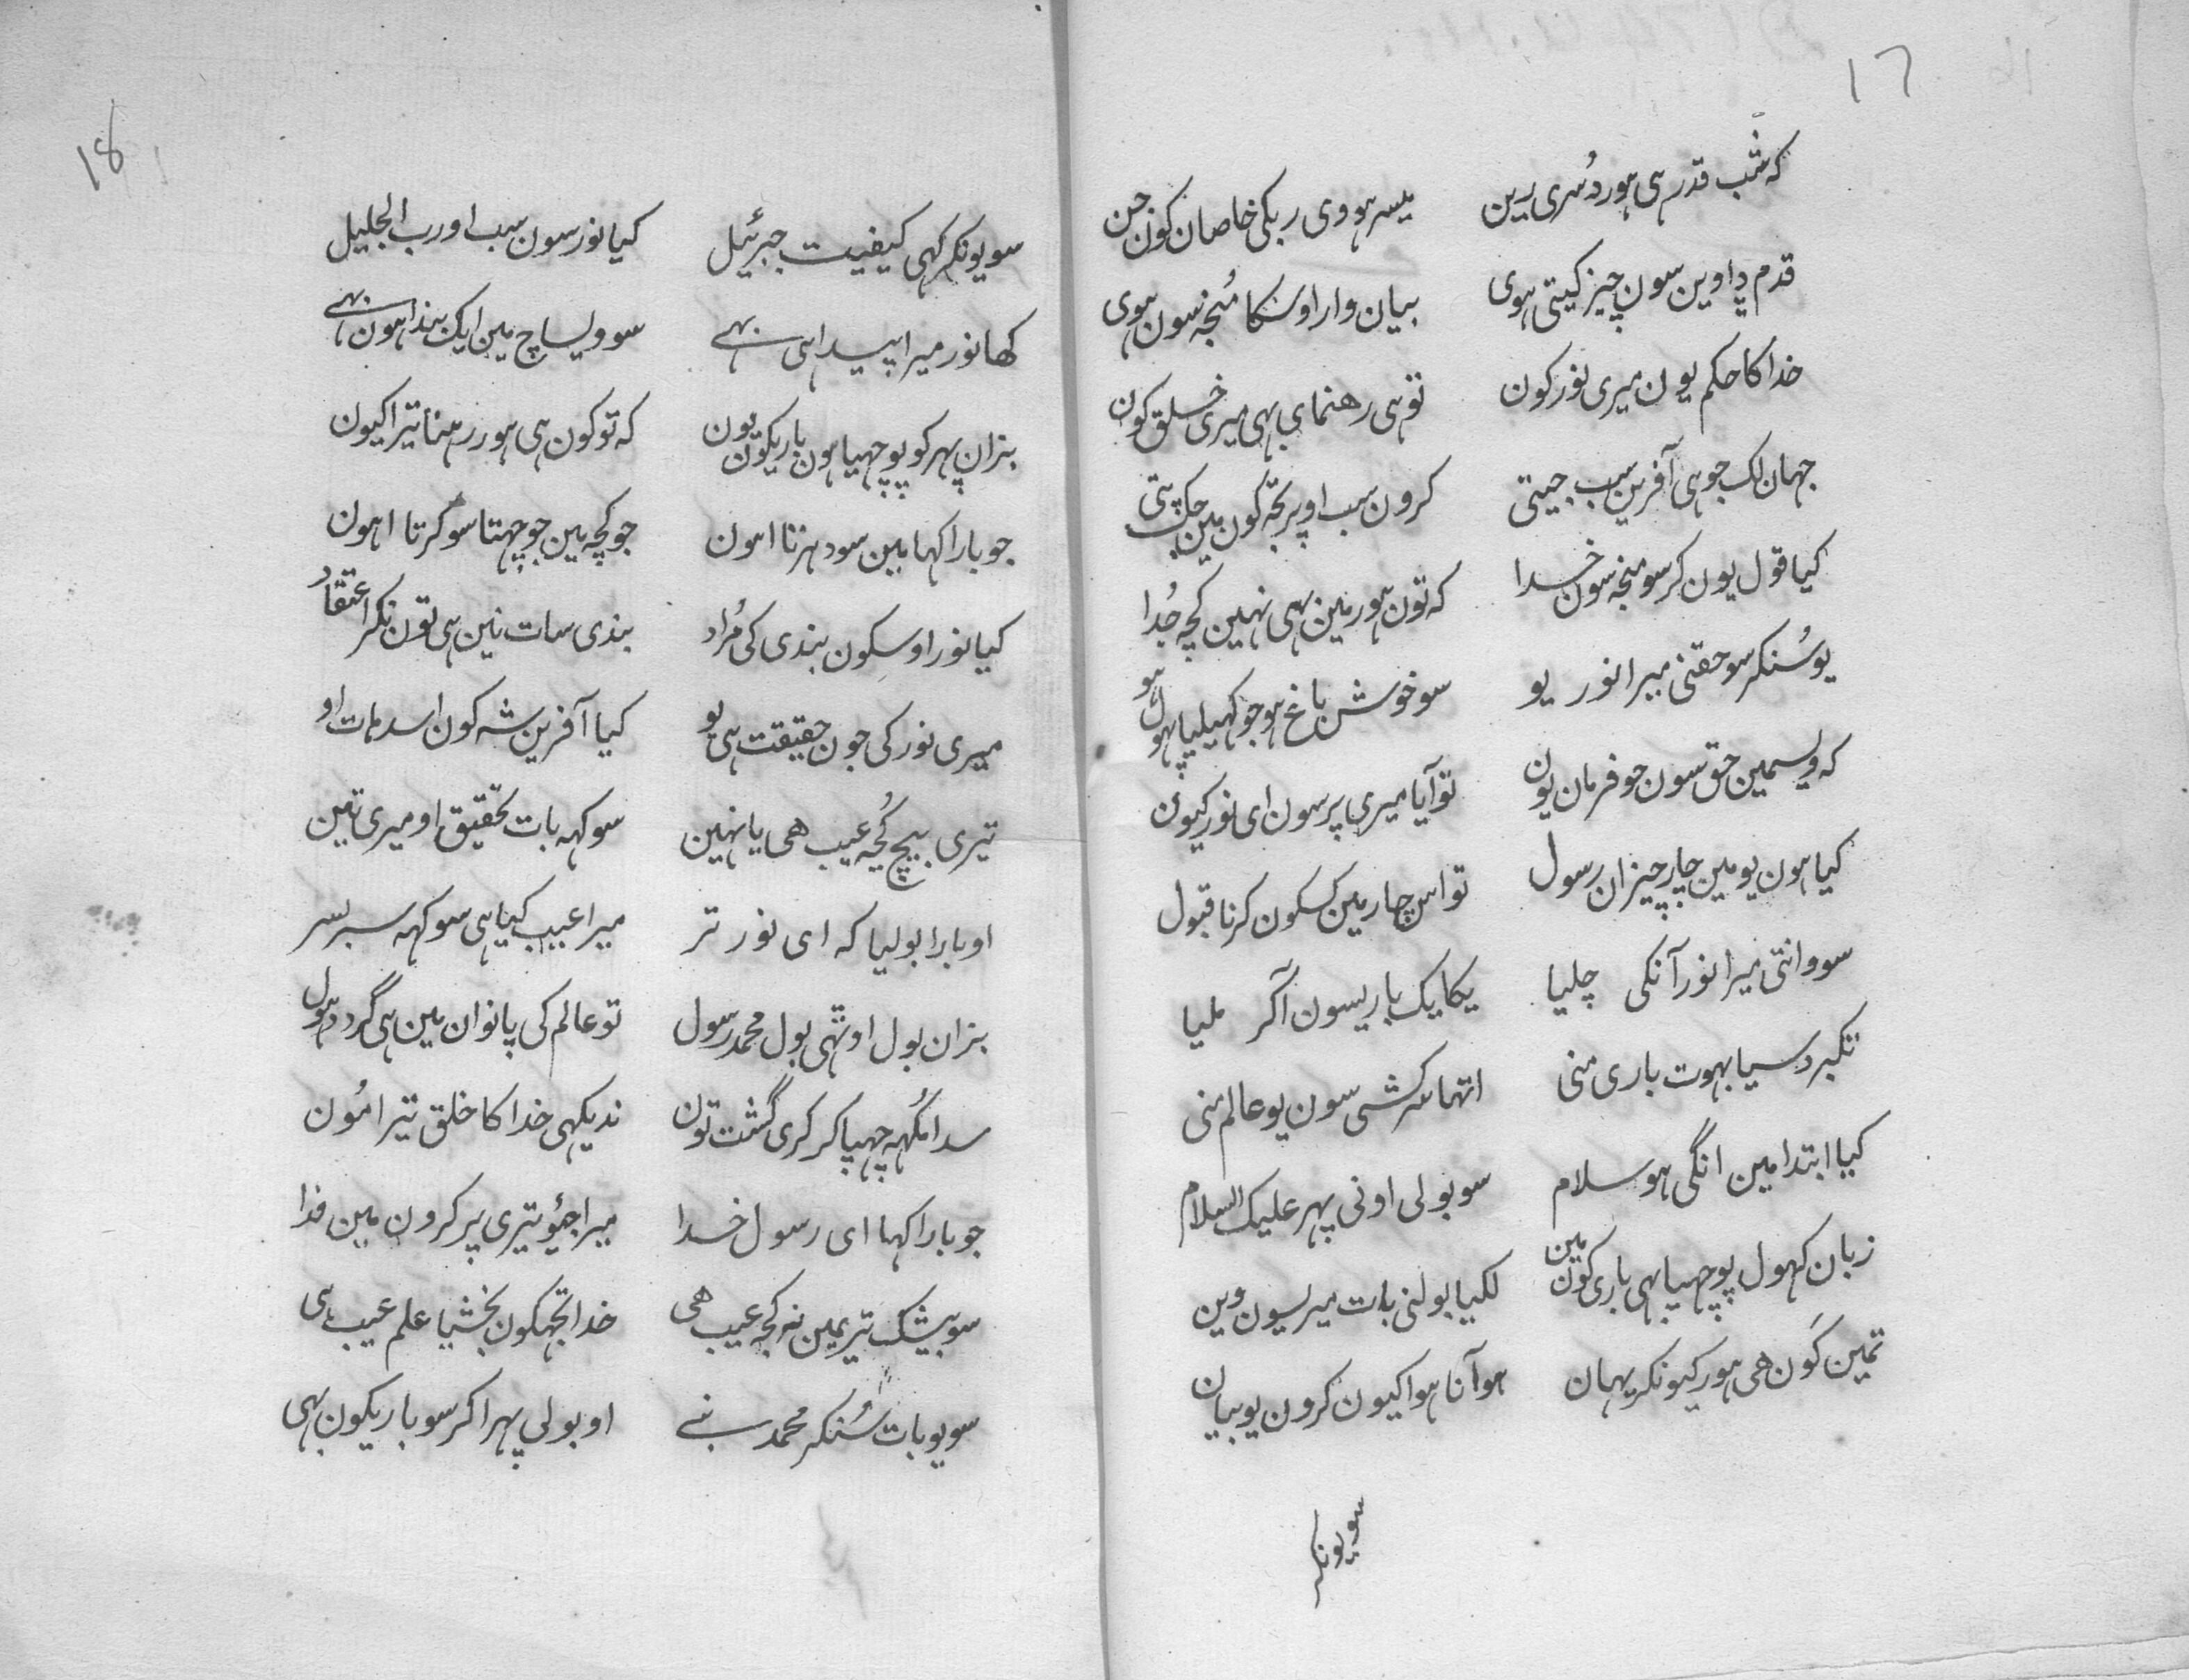 17
کہ شب قدر ہی ہور دُسری رین میسر ہووی ربکی خاصان کون جن
قدم پداوین سون چیز کیتی ہوی بیان وار اوسکا مُنجہ سون ہوی
خدا کا حکم یون میری نور کون توہی رهنمای بہی میری خلق کون
جہان لک جو ہی آفرین سب جیتی کرون سب اوپر تجّہ کون مین جک پتی
کیا قول یون کر سو منجہ سون خدا کہ تون ہور مین بہی نہین کچہ جُدا
یو سُنکر سو حقنی میرا نور یو سو خوش باغ ہو جو کہیلیا پہول ہو
کہ ویسمین حق سون جو فرمان یون تو آیا میری پر سون ای نور کیون
کیا ہون یو مین چار چیزان رسول تو اس چار مین کسکون کرنا قبول
سو وانتی میرا نور آنکی چلیا یکایک باریسون آکر ملیا
تکبر دسیا بہوت باری منی اتہا سرکشی سون یو عالم منی
کیا ابتدا مین انگی ہو سلام سو بولی اونی پہر علیک السلام
زبان کہول پوچہیا بہی باری کون مین لکیا بولنی بات میرسیون وین
تمین کَون هی ہور کیونکر یہان هو آنا ہوا کیون کرون یو بیان
سو یونکر
18
سو یونکر کہی کیفیت جبرئیل کیا نور سون سب او رب الجلیل
کہا نور میرا پیدا ہی بہی سو ویساچ مین ایک بندا ہون بہی
بزان پہر کو پوچہیا ہون باریکون یون کہ تو کون ہی ہور رہنا تیرا کیون
جو بارا کہا مین سو دہرتا اہون جو کچہ مین جو چہتا سو کرتا اہون
کیا نور اوسکون بندی کی مُراد بندی سات نین ہی تون نکر اعتقاد
میری نور کی جون حقیقت ہی یو کیا آفرینش کون اس دہات او
تیری بیچ کُچہ عیب هی یا نہین سو کہہ بات تحقیق او میری تین
او بارا بولیا کہ ای نور تر میرا عیب کیا ہی سو کہہ سر بسر
بزان بول اوتہی بول محمد رسول تو عالم کی پانوان مین ہی گرد دہول
سدا مُکہہ چہپا کر کری گشت تون ندیکہی خدا کا خلق تیرا مُون
جو بارا کہا ای رسول خدا میرا جئیو تیری پر کرون مین فدا
سو بیشک تیریمین نہ کچہ عیب هی خدا تجہکون بخشیا علم غیب ہی
سو یو بات سُنکر محمد بنی او بولی پہرا کر سو باریکون بہی